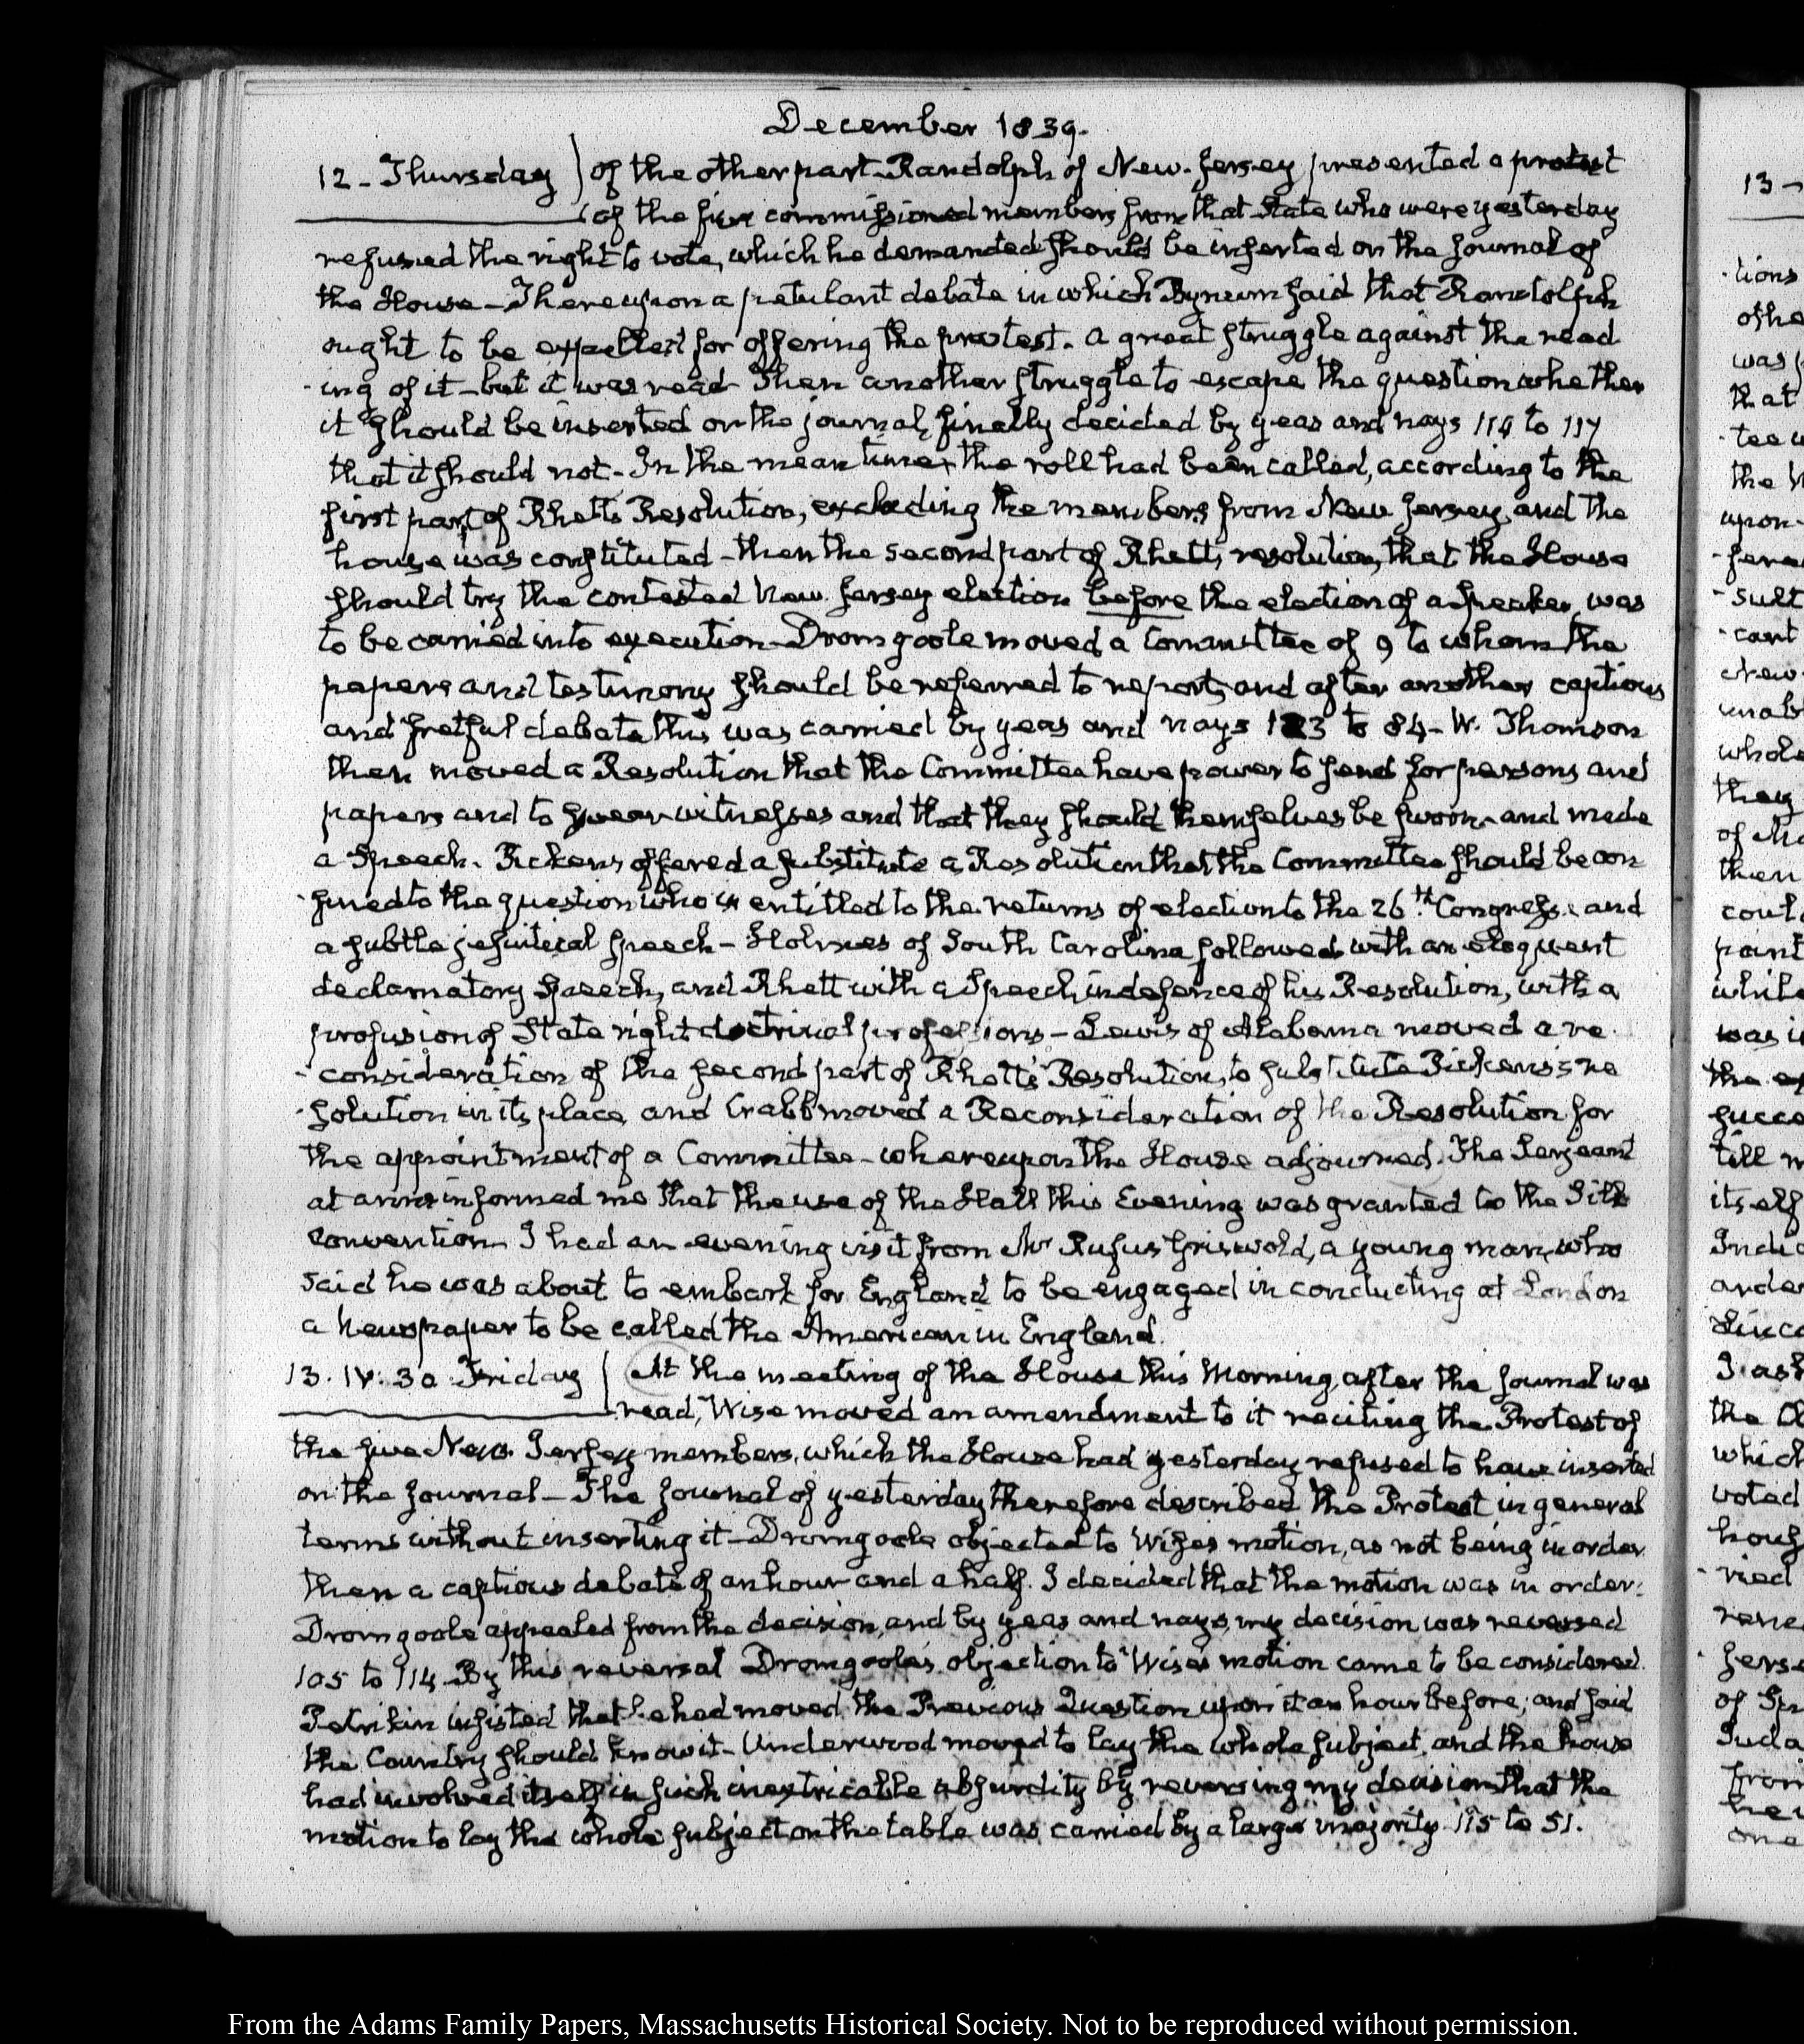 December 1839.
12 - Thursday
of the other part. Randolph of New-Jersey presented a protest
of the five commissioned members from that State who were yesterday
refused the right to vote, which he demanded should be inserted on the Journal of
the House - Thereupon a petulant debate in which Bynum said that Randolph
ought to be expelled for offering the protest. A great struggle against the read
ing of it - but it was read - Then another struggle to escape the question whether
it should be inserted on the journal, finally decided by yeas and nays 114 to 117
that it should not - In the mean time, the roll had been called, according to the
first part of Rhett's Resolution, excluding the members from New Jersey, and the
house was constituted - then the second part of Rhett's resolution, that the House
should try the contested New Jersey election before the election of a Speaker, was
to be carried into execution - Dromgoole moved a Committee of 9 to whom the
papers and testimony should be referred to report, and after another captious
and fretful debate this was carried by yeas and nays 123 to 84 - W. Thomson
then moved a Resolution that the Committee have power to send for persons and
papers and to swear witnesses and that they should themselves be sworn - and made
a Speech. Pickens offered a substitute a Resolution that the Committee should be con
fined to the question who is entitled to the returns of election to the 26th Congress and
a subtle jesuitical speech - Holmes of South Carolina followed with an eloquent
declamatory speech, and Rhett with a Speech in defence of his Resolution, with a
profusion of State right doctrinal professions - Lewis of Alabama moved a re
consideration of the second part of Rhett's Resolution, to substitute Pickens's re
solution in its place, and Crabb moved a Reconsideration of the Resolution for
the appointment of a Committee - whereupon the House adjourned. The Serjeant
at arms informed me that the use of the Hall this Evening was granted to the Silk
convention - I had an evening visit from Mr Rufus Griswold, a young man, who
said he was about to embark for England to be engaged in conducting at London
a newspaper to be called the American in England.
13. IV. 30 Friday
At the meeting of the House this Morning, after the Journal was
read, Wise moved an amendment to it reciting the Protest of
the five New Jersey members, which the House had yesterday refused to have inserted
on the Journal - The Journal of yesterday therefore described the Protest in general
terms without inserting it - Dromgoole objected to Wise's motion, as not being in order
then a captious debate of an hour and a half. I decided that the motion was in order.
Dromgoole appealed from the decision, and by yeas and nays, my decision was reversed
105 to 114. By this reversal Dromgoole's objection to Wise's motion came to be considered.
Petrikin insisted that he had moved the Previous Question upon it an hour before; and said
the Country should know it - Underwood moved to lay the whole subject, and the house
had involved itself in such inextricable absurdity by reversing my decision that the
motion to lay the whole subject on the table was carried by a large majority 115 to 51.
13 -
tions
was
that
tee
the
upon
sult
New
whole
they
of
then
was
the
till
itself
I ask
the
which
voted
of
from
one
From the Adams Family Papers, Massachusetts Historical Society. Not to be reproduced without permission.